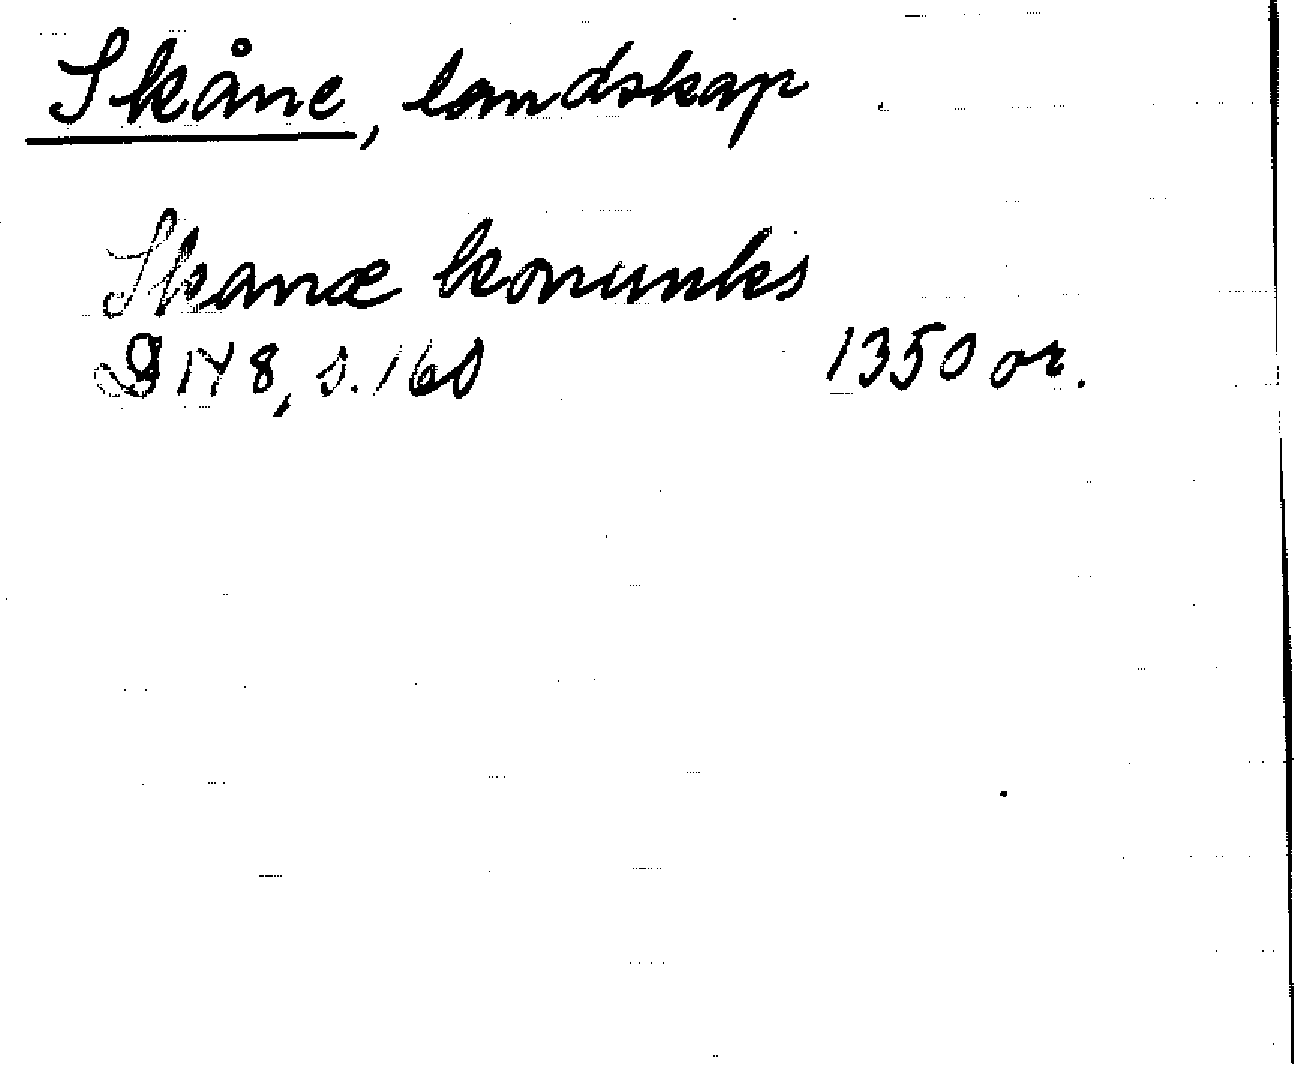 Skåne, landskap
Skanæ konunks
DN 8, s. 160 1350 or.